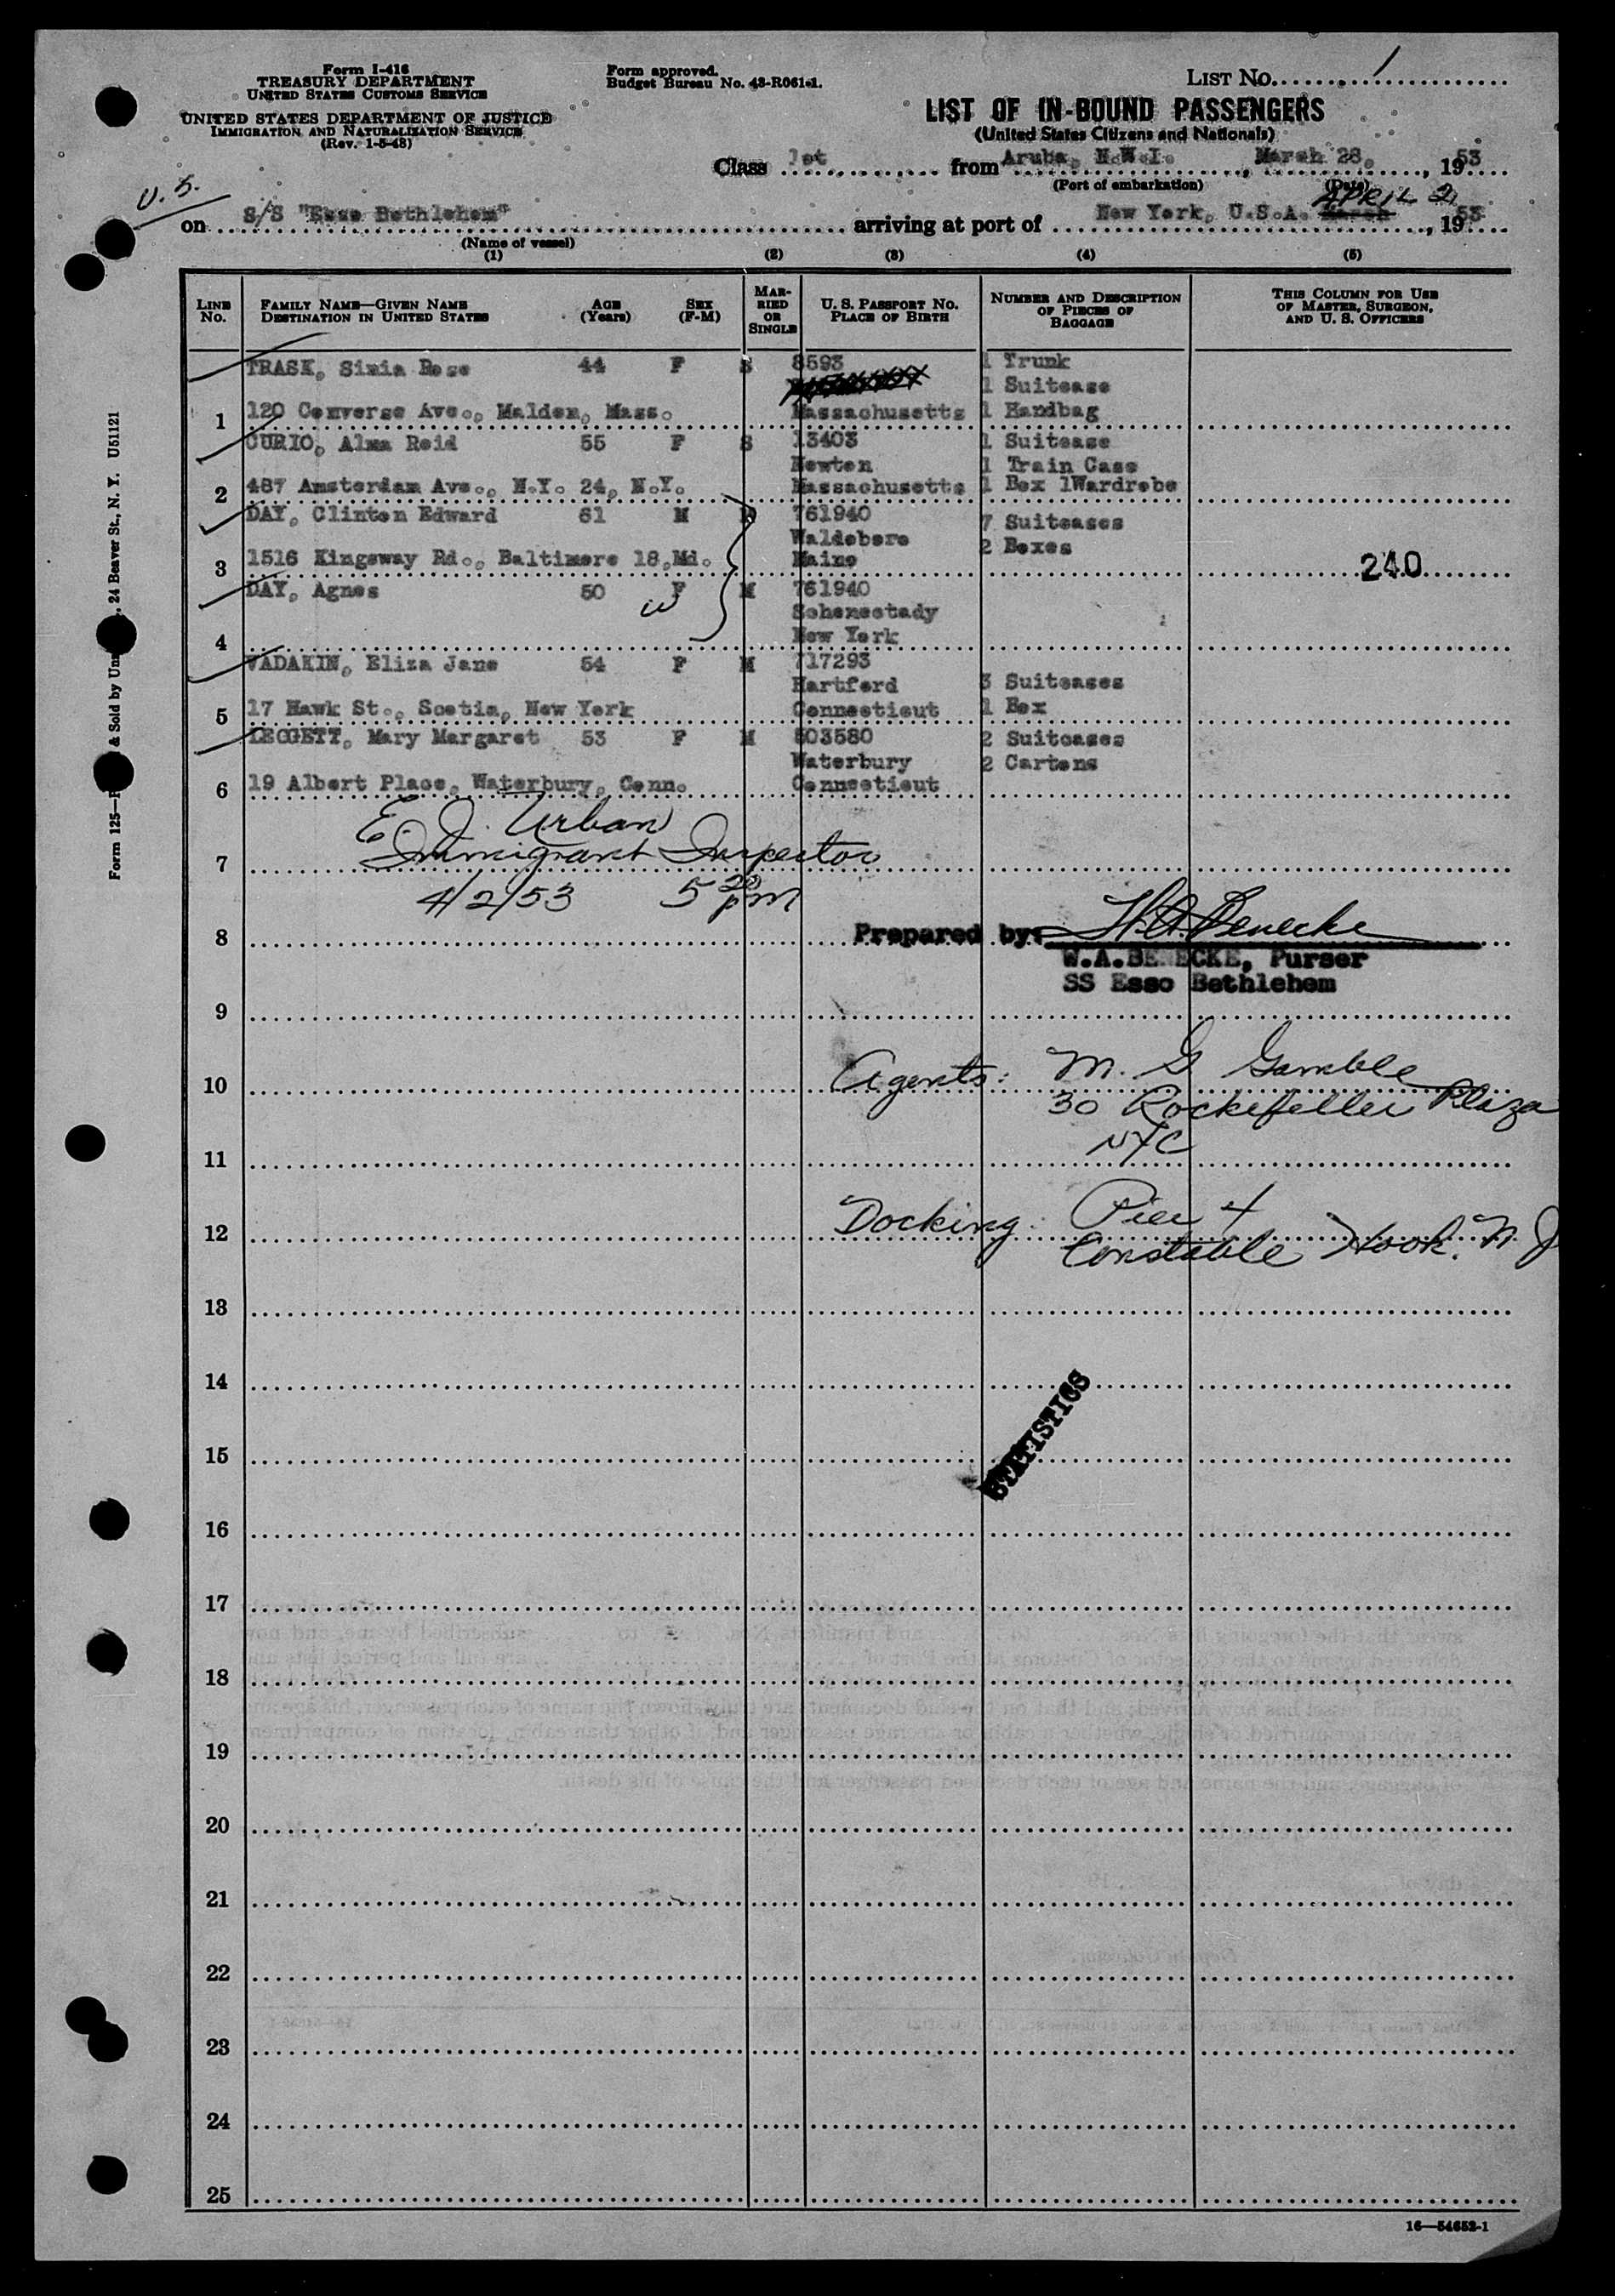 Form I-416
TREASURY DEPARTMENT
UNITED STATES CUSTOMS SERVICE
UNITED STATES DEPARTMENT OF JUSTICE
IMMIGRATION AND NATURALIZATION SERVICE
(Rev. 1-5-48)
Form approved.
Budget Bureau No. 43-R061-1.
LIST NO. 1
LIST OF IN-BOUND PASSENGERS
(United States Citizens and Nationals)
Class 1st from Aruba, N.W.I., March 28, 1953
(Port of embarkation) (Date)
U.S.
APRIL 2,
on S/S "Esso Bethlehem" arriving at port of New York, U.S.A. March, 1953
(Name of vessel)
(1) (2) (3) (4) (5)
LINE No. FAMILY NAME—GIVEN NAME DESTINATION IN UNITED STATES AGE (Years) SEX (F-M) MARRIED OR SINGLE U. S. PASSPORT NO. PLACE OF BIRTH NUMBER AND DESCRIPTION OF PIECES OF BAGGAGE THIS COLUMN FOR USE OF MASTER, SURGEON, AND U. S. OFFICERS
TRASK, Simia Rose 44 F S 8593 1 Trunk
1 Suitcase
1 120 Converse Ave., Malden, Mass. Massachusetts 1 Handbag
CURIO, Alma Reid 55 F S 13403 1 Suitcase
Newton 1 Train Case
2 487 Amsterdam Ave., N.Y. 24, N.Y. Massachusetts 1 Box 1Wardrobe
DAY, Clinton Edward 61 M M 761940 7 Suitcases
Waldobore 2 Boxes
3 1516 Kingsway Rd., Baltimore 18,Md. Maine 240
DAY, Agnes 50 F M 761940
W Schenectady
4 New York
VADAKIN, Eliza Jane 54 F M 717293
Hartford 3 Suitcases
5 17 Hawk St., Scotia, New York Connecticut 1 Box
LEGGETT, Mary Margaret 53 F M 503580 2 Suitcases
Waterbury 2 Cartons
6 19 Albert Place, Waterbury, Conn. Connecticut
E. J. Urban
7 Immigrant Inspector
4/2/53 5 20 pm
8 Prepared by: W.A. Benecke
W.A.BENECKE, Purser
SS Esso Bethlehem
9
10 Agents: M. G Gamble
30 Rockefeller Plaza
11 NYC
12 Docking: Pier 4
Constable Hook. N J
13
14
STATISTICS
15
16
17
18
19
20
21
22
23
24
25
16—54652-1
Form 125— & Sold by Un , 24 Beaver St., N. Y. U51121